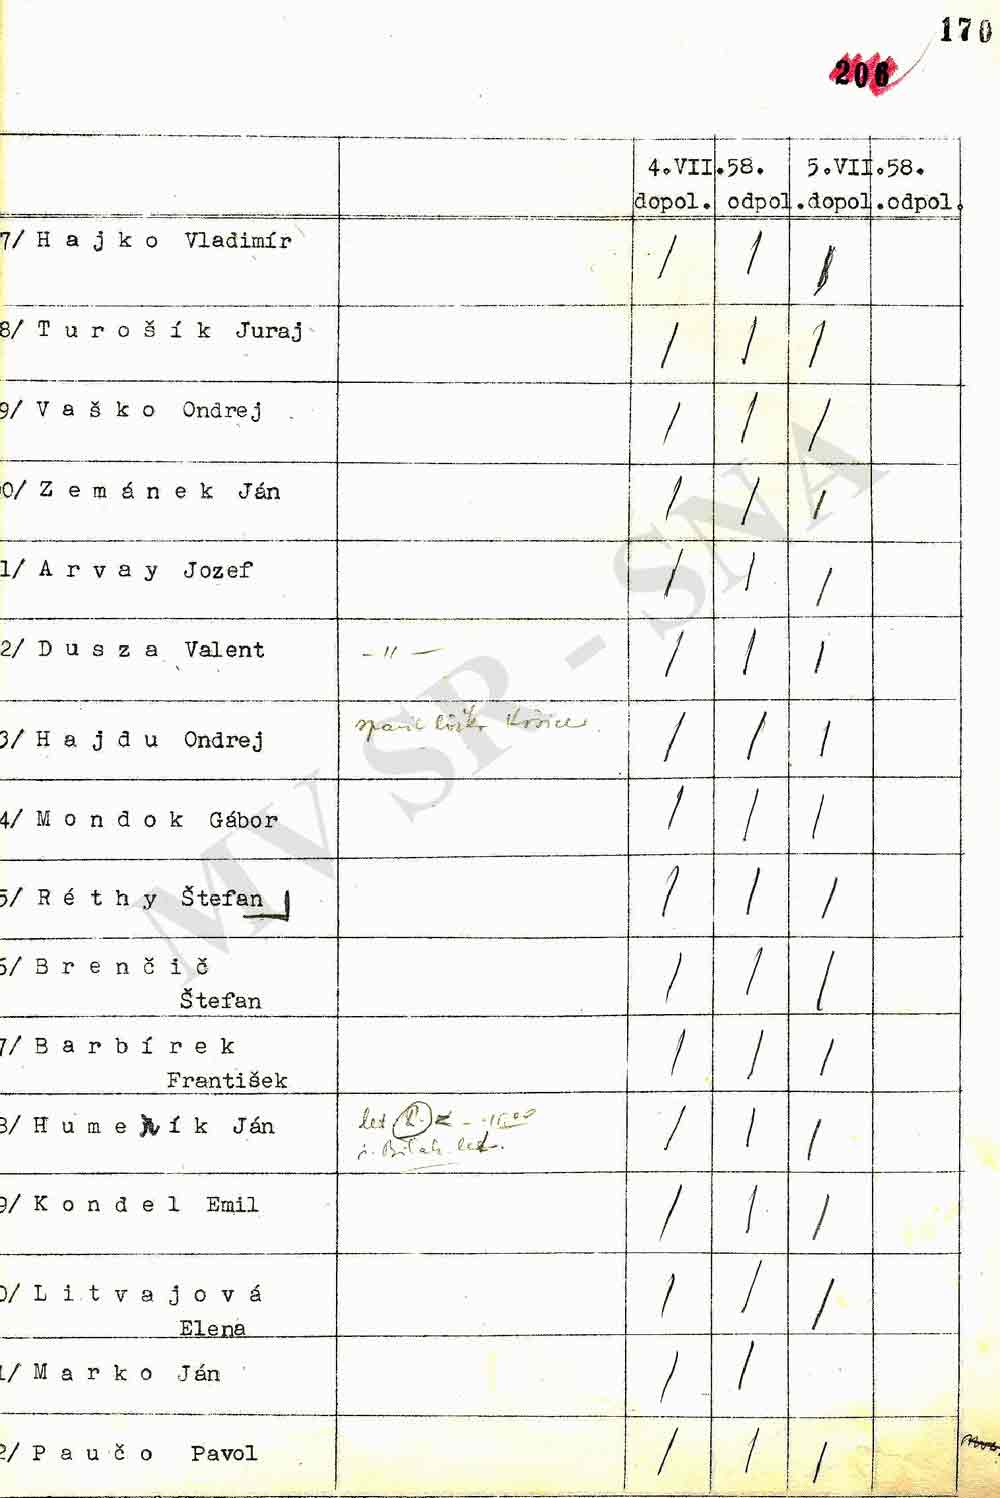 170
206
4.VII.58. 5.VII.58.
dopol. odpol. dopol. odpol.
7/ H a j k o Vladimír / / /
8/ T u r o š í k Juraj / / /
9/ V a š k o Ondrej / / /
0/ Z e m á n e k Ján / / /
1/ A r v a y Jozef / / /
2/ D u s z a Valent - " - / / /
3/ H a j d u Ondrej Košice / / /
4/ M o n d o k Gábor / / /
5/ R é t h y Štefan / / /
6/ B r e n č i č / / /
Štefan
7/ B a r b í r e k / / /
František
8/ H u m e n í k Ján / / /
9/ K o n d e l Emil / / /
0/ L i t v a j o v á / / /
Elena
1/ M a r k o Ján / /
2/ P a u č o Pavol / / /
MV SR - SNA